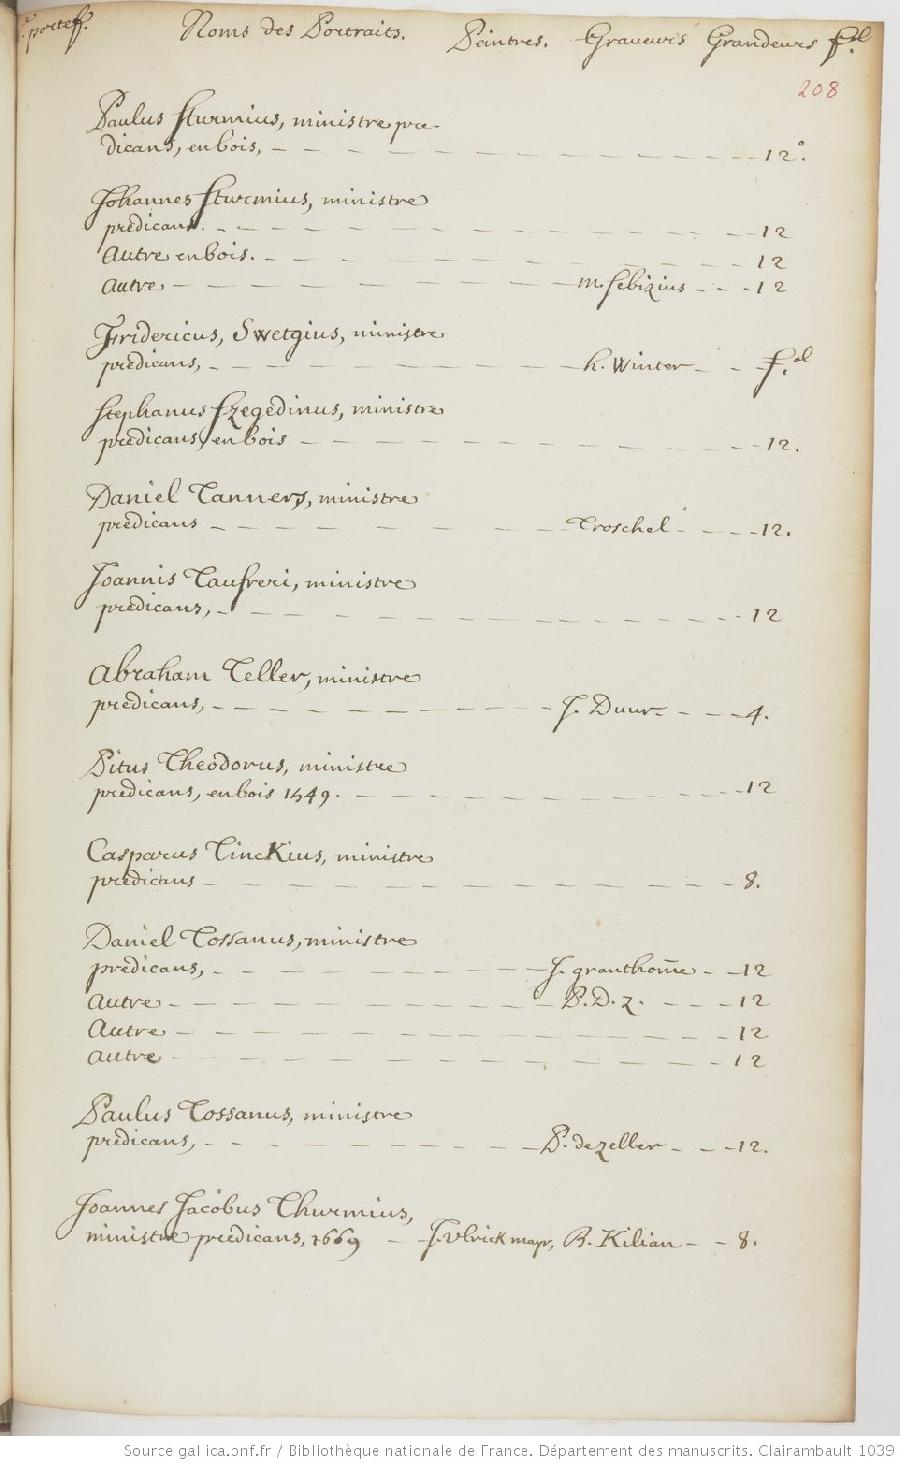 porteff. Noms des Portraits. Peintres. Graveurs Grandeurs
208
Paulus Sturmius, ministre pre-
dicans, en bois, - - - 12°.
Johannes Sturmius, ministre
predicans. - - - 12
Autre en bois. - - - 12
Autre - - - m. Sebizius - - - 12
Fridericus, Swetgius, ministre
predicans, - - - h. Winter - - f.ol
Stephanus Szegedinus, ministre
predicans, en bois - - - 12.
Daniel Tanners, ministre
predicans - - - Troschel - - - 12.
Joannis Taufreri, ministre
predicans, - - - 12
Abraham Teller, ministre
predicans, - - - J. Duur - - - 4.
Pitus Theodorus, ministre
predicans, en bois 1549. - - - 12
Casparus Tinckius, ministre
predicans - - - 8.
Daniel Tossanus, ministre
predicans, - - - J. granthome - - 12
Autre - - - P. D. z. - - - 12
Autre - - - 12
Autre - - - 12
Paulus Tossanus, ministre
predicans, - - - P. dezeller - - - 12.
Joannes Jacobus Thurmius,
ministre predicans, 1669 - - J. Ulrick mayr, B. Kilian - - 8.
Source gallica.bnf.fr / Bibliothèque nationale de France. Département des manuscrits. Clairambault 1039